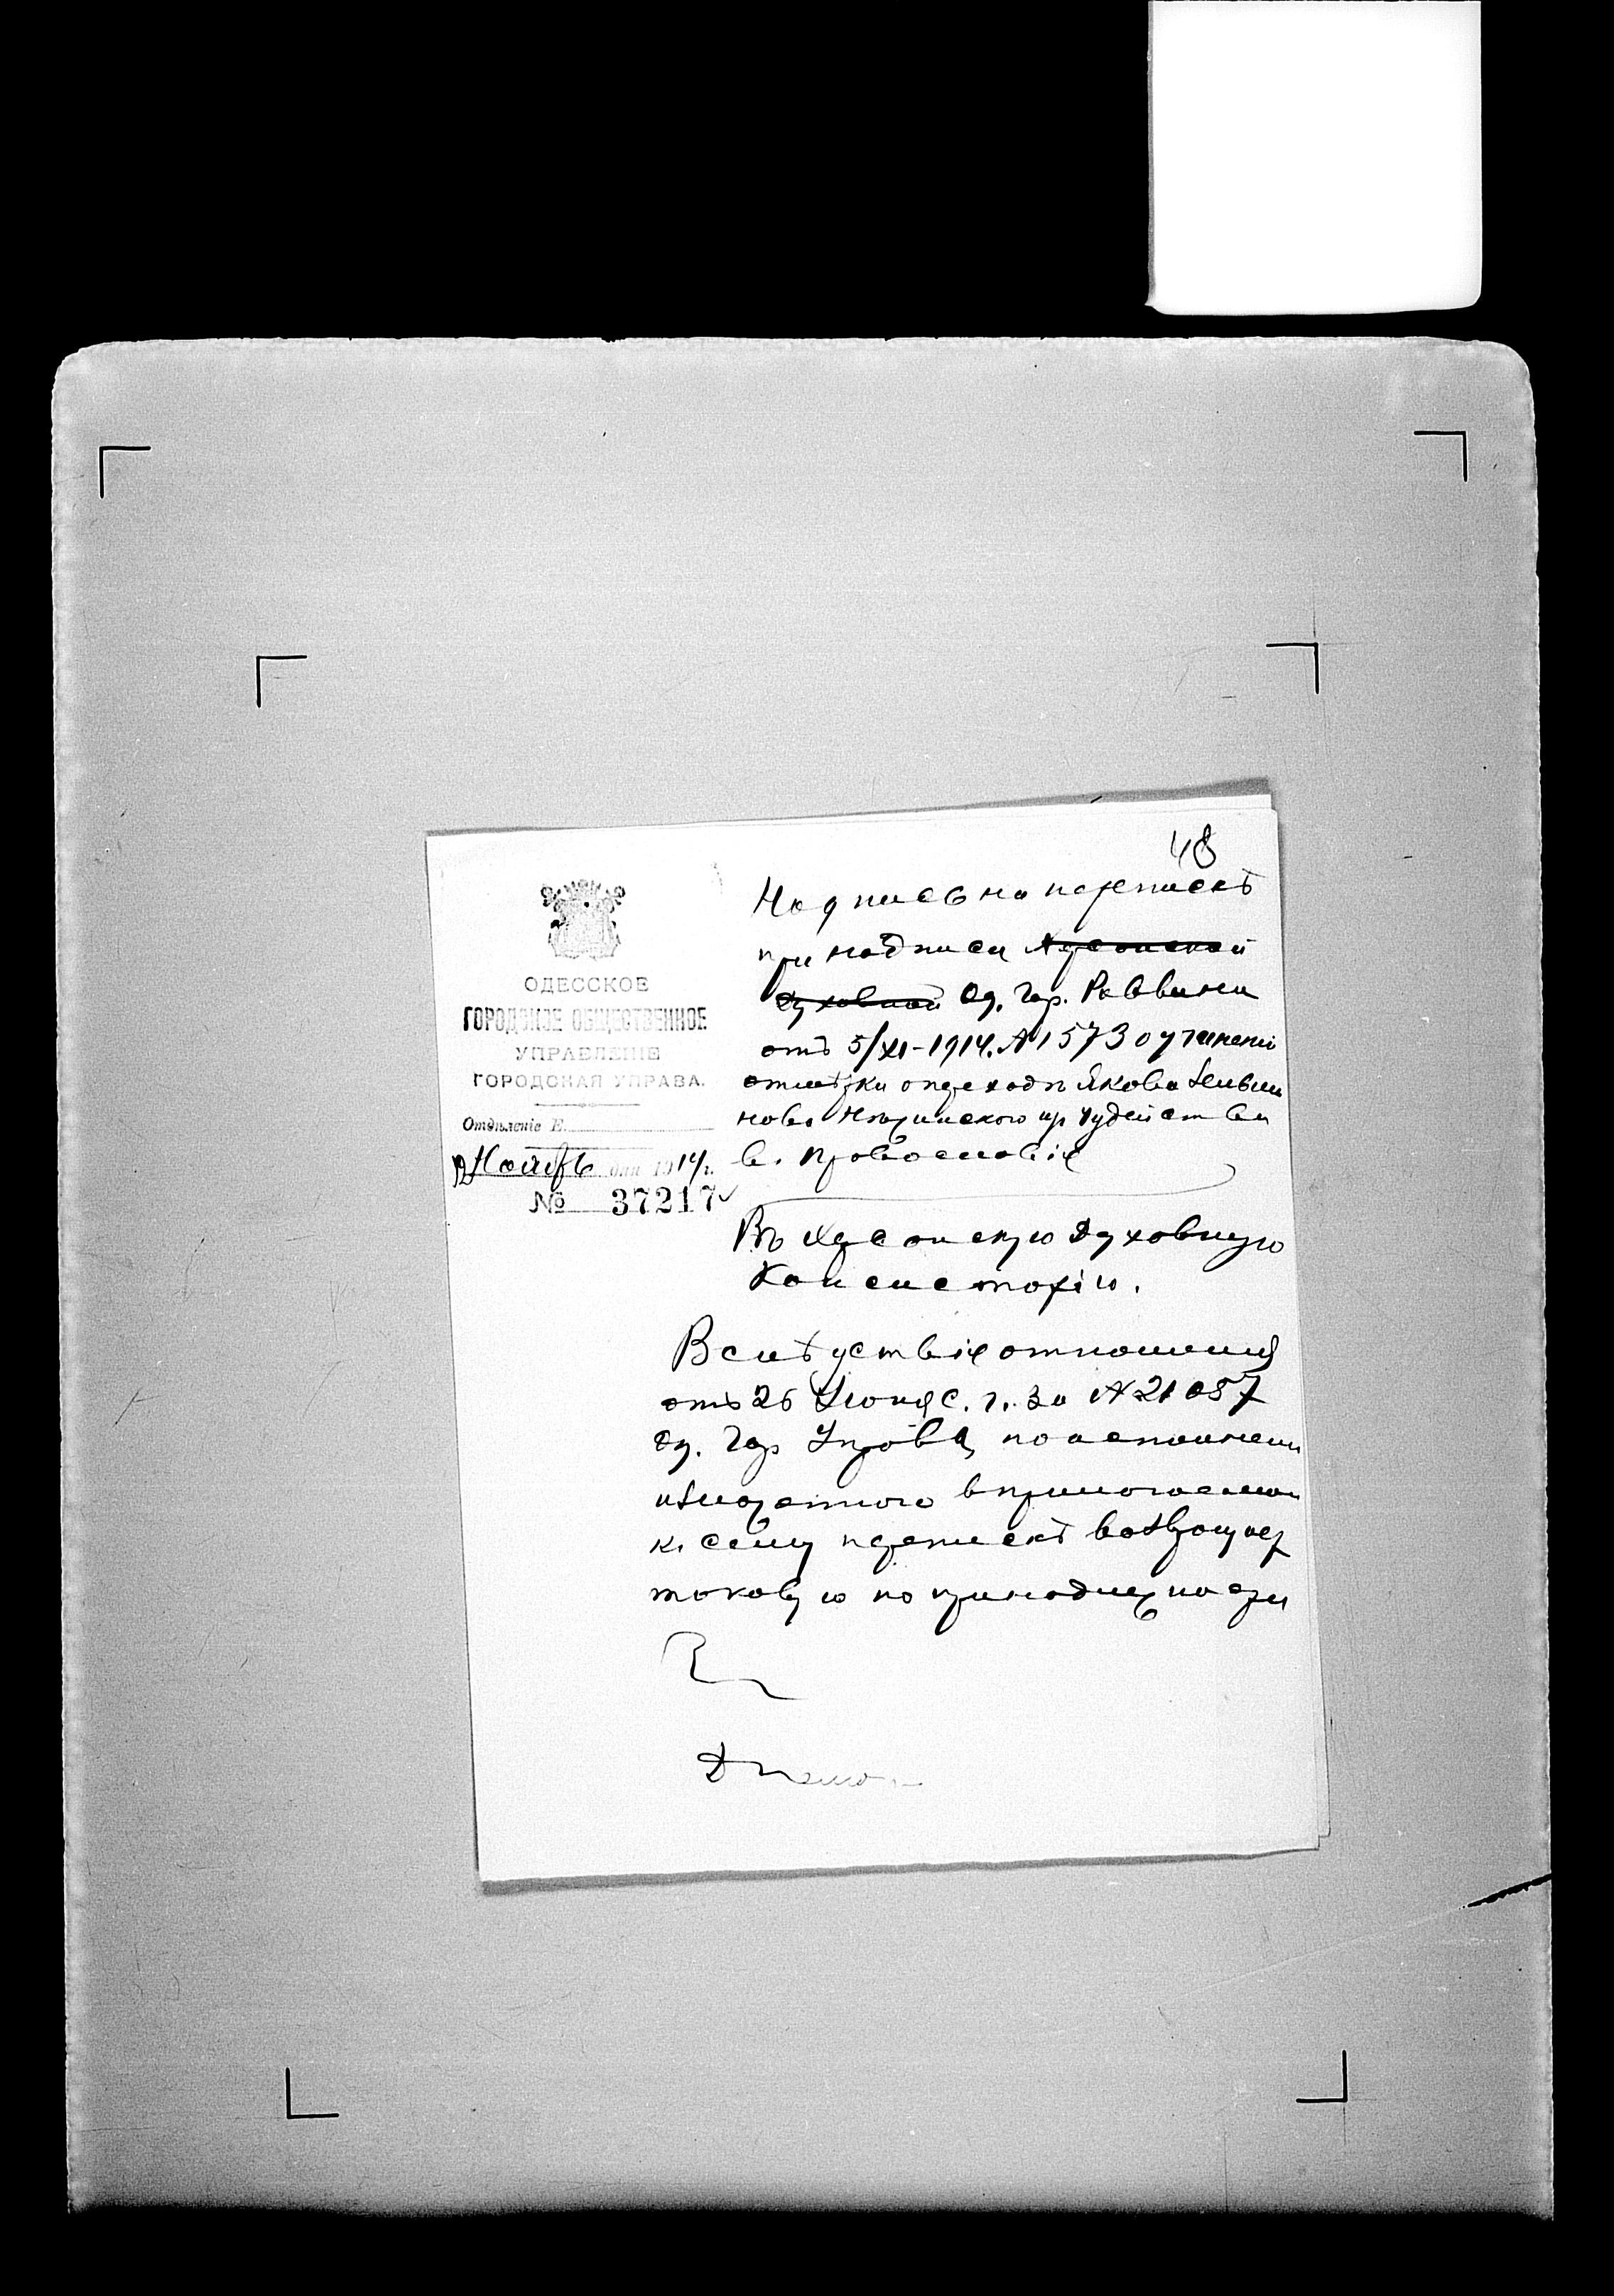 48
ОДЕССКОЕ
ГОРОДСКОЕ ОБЩЕСТВЕННОЕ
УПРАВЛЕНІЕ
ГОРОДСКАЯ УПРАВА.
Отдѣленіе Е.
Ноября дня 1914 г.
№ 37217
Надпись на перепискѣ
при надписи Херсонской
Духовной Од. Гор. Раввина
отъ 5/XI-1914. № 1573 о учиненіи
отмѣтки о переходѣ Якова
изъ Іудейства
в. Православіе
Въ Херсонскую Духовную
Консисторію.
Вслѣдствіе отношенія
отъ 26 Іюня с. г. за № 21057
Од. Гор Управа, по исполненіи
изложеннаго в прилагаемой
к. сему перепискѣ возвращает
таковую по принадлежности